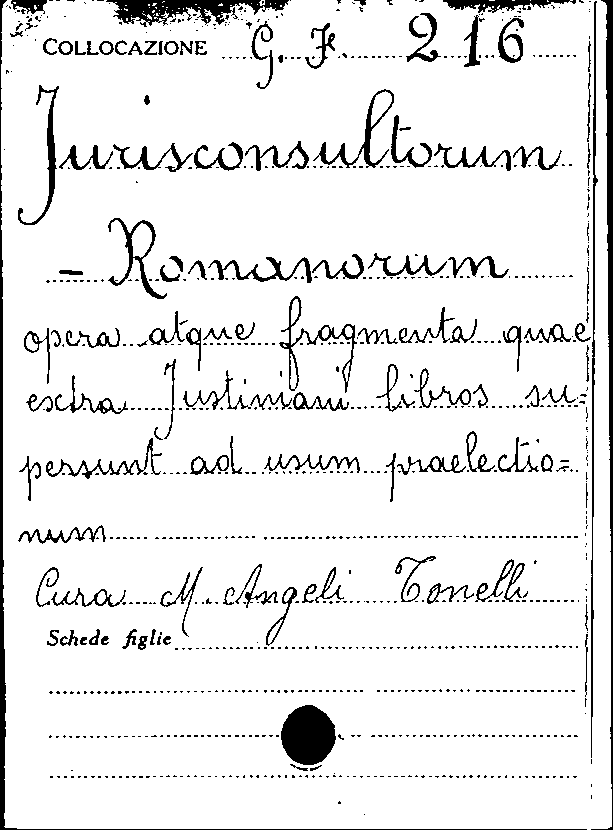 COLLOCAZIONE G. F. 216
Jurisconsultorum
- Romanorum
opera atque fragmenta quae
extra Justiniani libros su=
persunt ad usum praelectio=
num
Cura M. Angeli Tonelli
Schede figlie